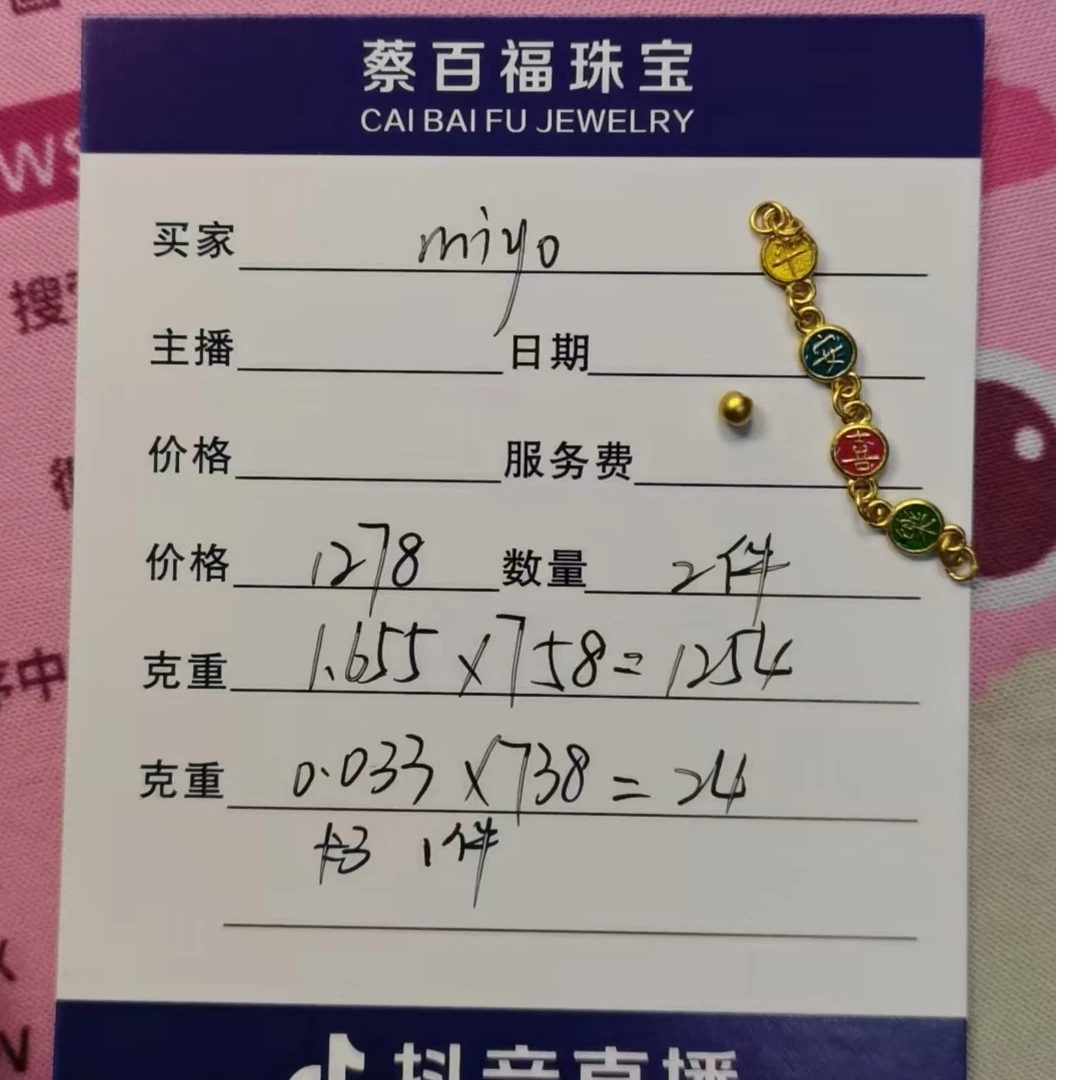 蔡百福珠宝
CAI BAI FU JEWELRY
买家 miyo
主播 日期
价格 服务费
价格 1278 数量 2件
克重 1.655×758=1254
克重 0.033×738=24
1件
平
安
喜
乐
抖音直播
WS
搜
中
X
W